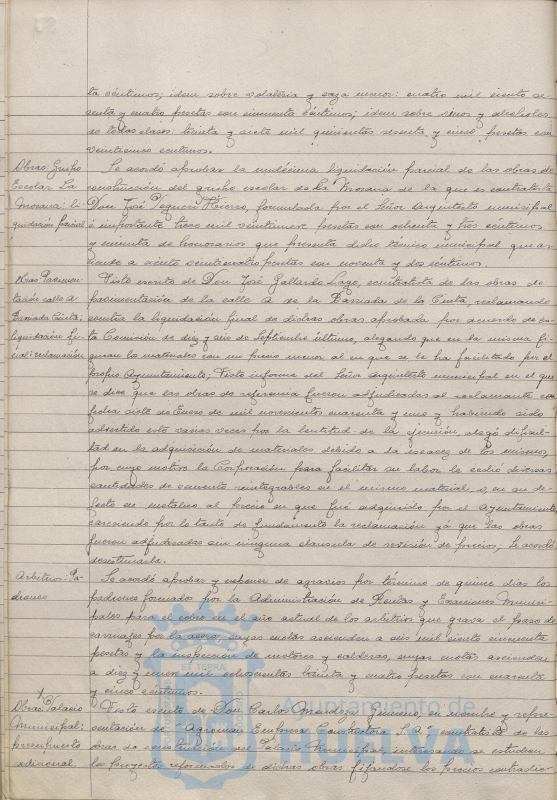 ta céntimos; idem sobre volatería y caza menor: cuatro mil ciento se-
senta y cuatro pesetas con cincuenta céntimos; idem sobre vinos y alcoholes
de todas clases: treinta y siete mil quinientas sesenta y cinco pesetas con
veinticinco centimos.
Obras: Grupo
Escolar La
Morana: li
quidación parcial
Se acordó aprobar la undécima liquidación parcial de las obras de
construcción del grupo escolar de La Morana de la que es contratista
Don José Figueroa Hierro, formulada por el Señor Arquitecto municipal
e importante trece mil veintinueve pesetas con ochenta y tres céntimos
y minuta de honorarios que presenta dicho técnico municipal que as-
ciende a ciento veinticuatro pesetas con noventa y dos centimos.
Obras Pavimen-
tación calle A
Barriada Cinta;
liquidación fi-
nal: reclamación
Visto escrito de Don José Gallardo Lago, contratista de las obras de
pavimentación de la calle A de la Barriada de la Cinta, reclamando
contra la liquidación final de dichas obras aprobada por acuerdo de es-
ta Comisión de diez y seis de Septiembre último, alegando que en la misma fi-
guran los materiales con un precio menor al en que se le ha facilitado por el
propio Ayuntamiento; Visto informe del Señor Arquitecto municipal en el que
se dice que las obras de referencia fueron adjudicadas al reclamante con
fecha siete de Enero de mil novecientos cuarenta y nueve y habiendo sido
advertido este varias veces por la lentitud de la ejecución, alegó dificul-
tad en la adquisición de materiales debido a la escasez de los mismos,
por cuyo motivo la Corporación para facilitar su labor le cedió diversas
cantidades de cemento reintegrables en el mismo material, o, en su de-
fecto en metalico al precio en que fué adquirido por el Ayuntamiento,
careciendo por lo tanto de fundamento la reclamación ya que las obras
fueron adjudicadas sin ninguna clausula de revisión de precios; Se acordó
desestimarla.
Arbitrios: Pa-
drones
Se acordó aprobar y exponer de agravios por término de quince días los
padrones formados por la Administración de Rentas y Exacciones Munici-
pales para el cobro en el año actual de los arbitrios que grava el paso de
carruajes por la acera, cuyas cuotas ascienden a seis mil ciento cincuenta
pesetas y la inspección de motores y calderas, cuyas cuotas ascienden
a diez y nueve mil ochocientas treinta y cuatro pesetas con cuarenta
y cinco centimos.
Obras Palacio
Municipal:
presupuesto
adicional
Visto escrito de Don Carlos Mendoza Gimeno, en nombre y repre-
sentación de "Agroman Empresa Constructora S.A.", contratista de las
obras de construcción del Palacio Municipal, interesando se estudien
los proyectos reformados de dichas obras fijandose los precios contradic-
Ayuntamiento de
HUELVA